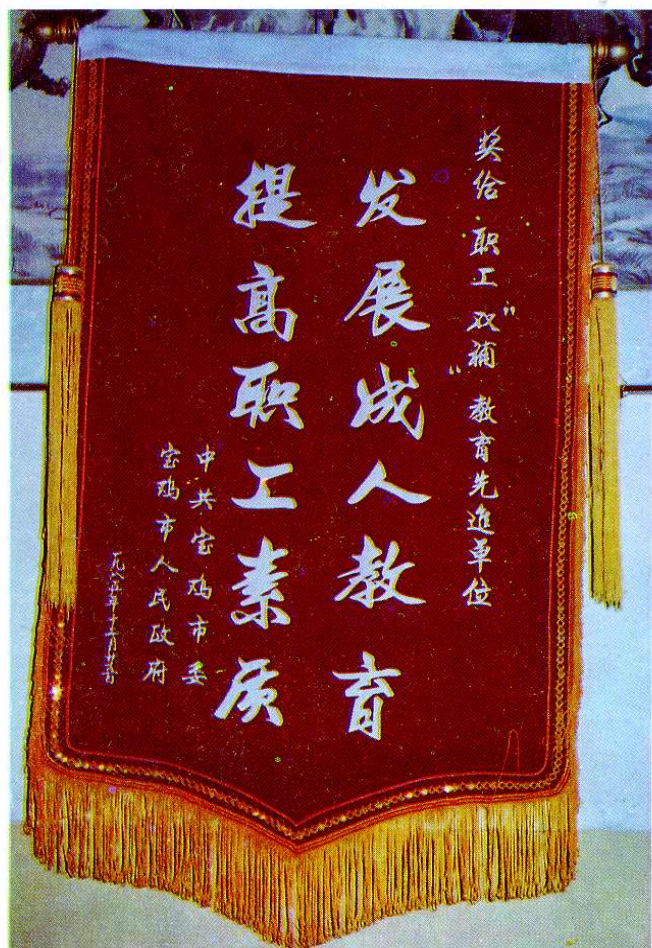 奖给职工“双补”教育先进单位
发展成人教育
提高职工素质
中共宝鸡市委
宝鸡市人民政府
一九八五年十二月